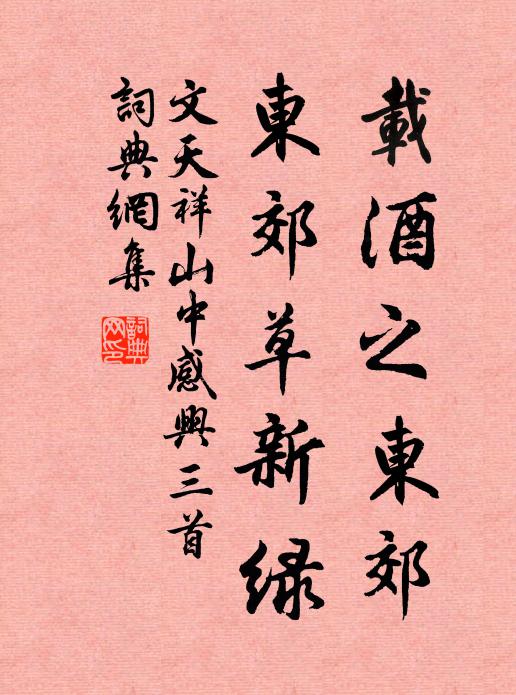 載酒之東郊
東郊草新綠
文天祥山中感興三首
詞典網集
詞典網印